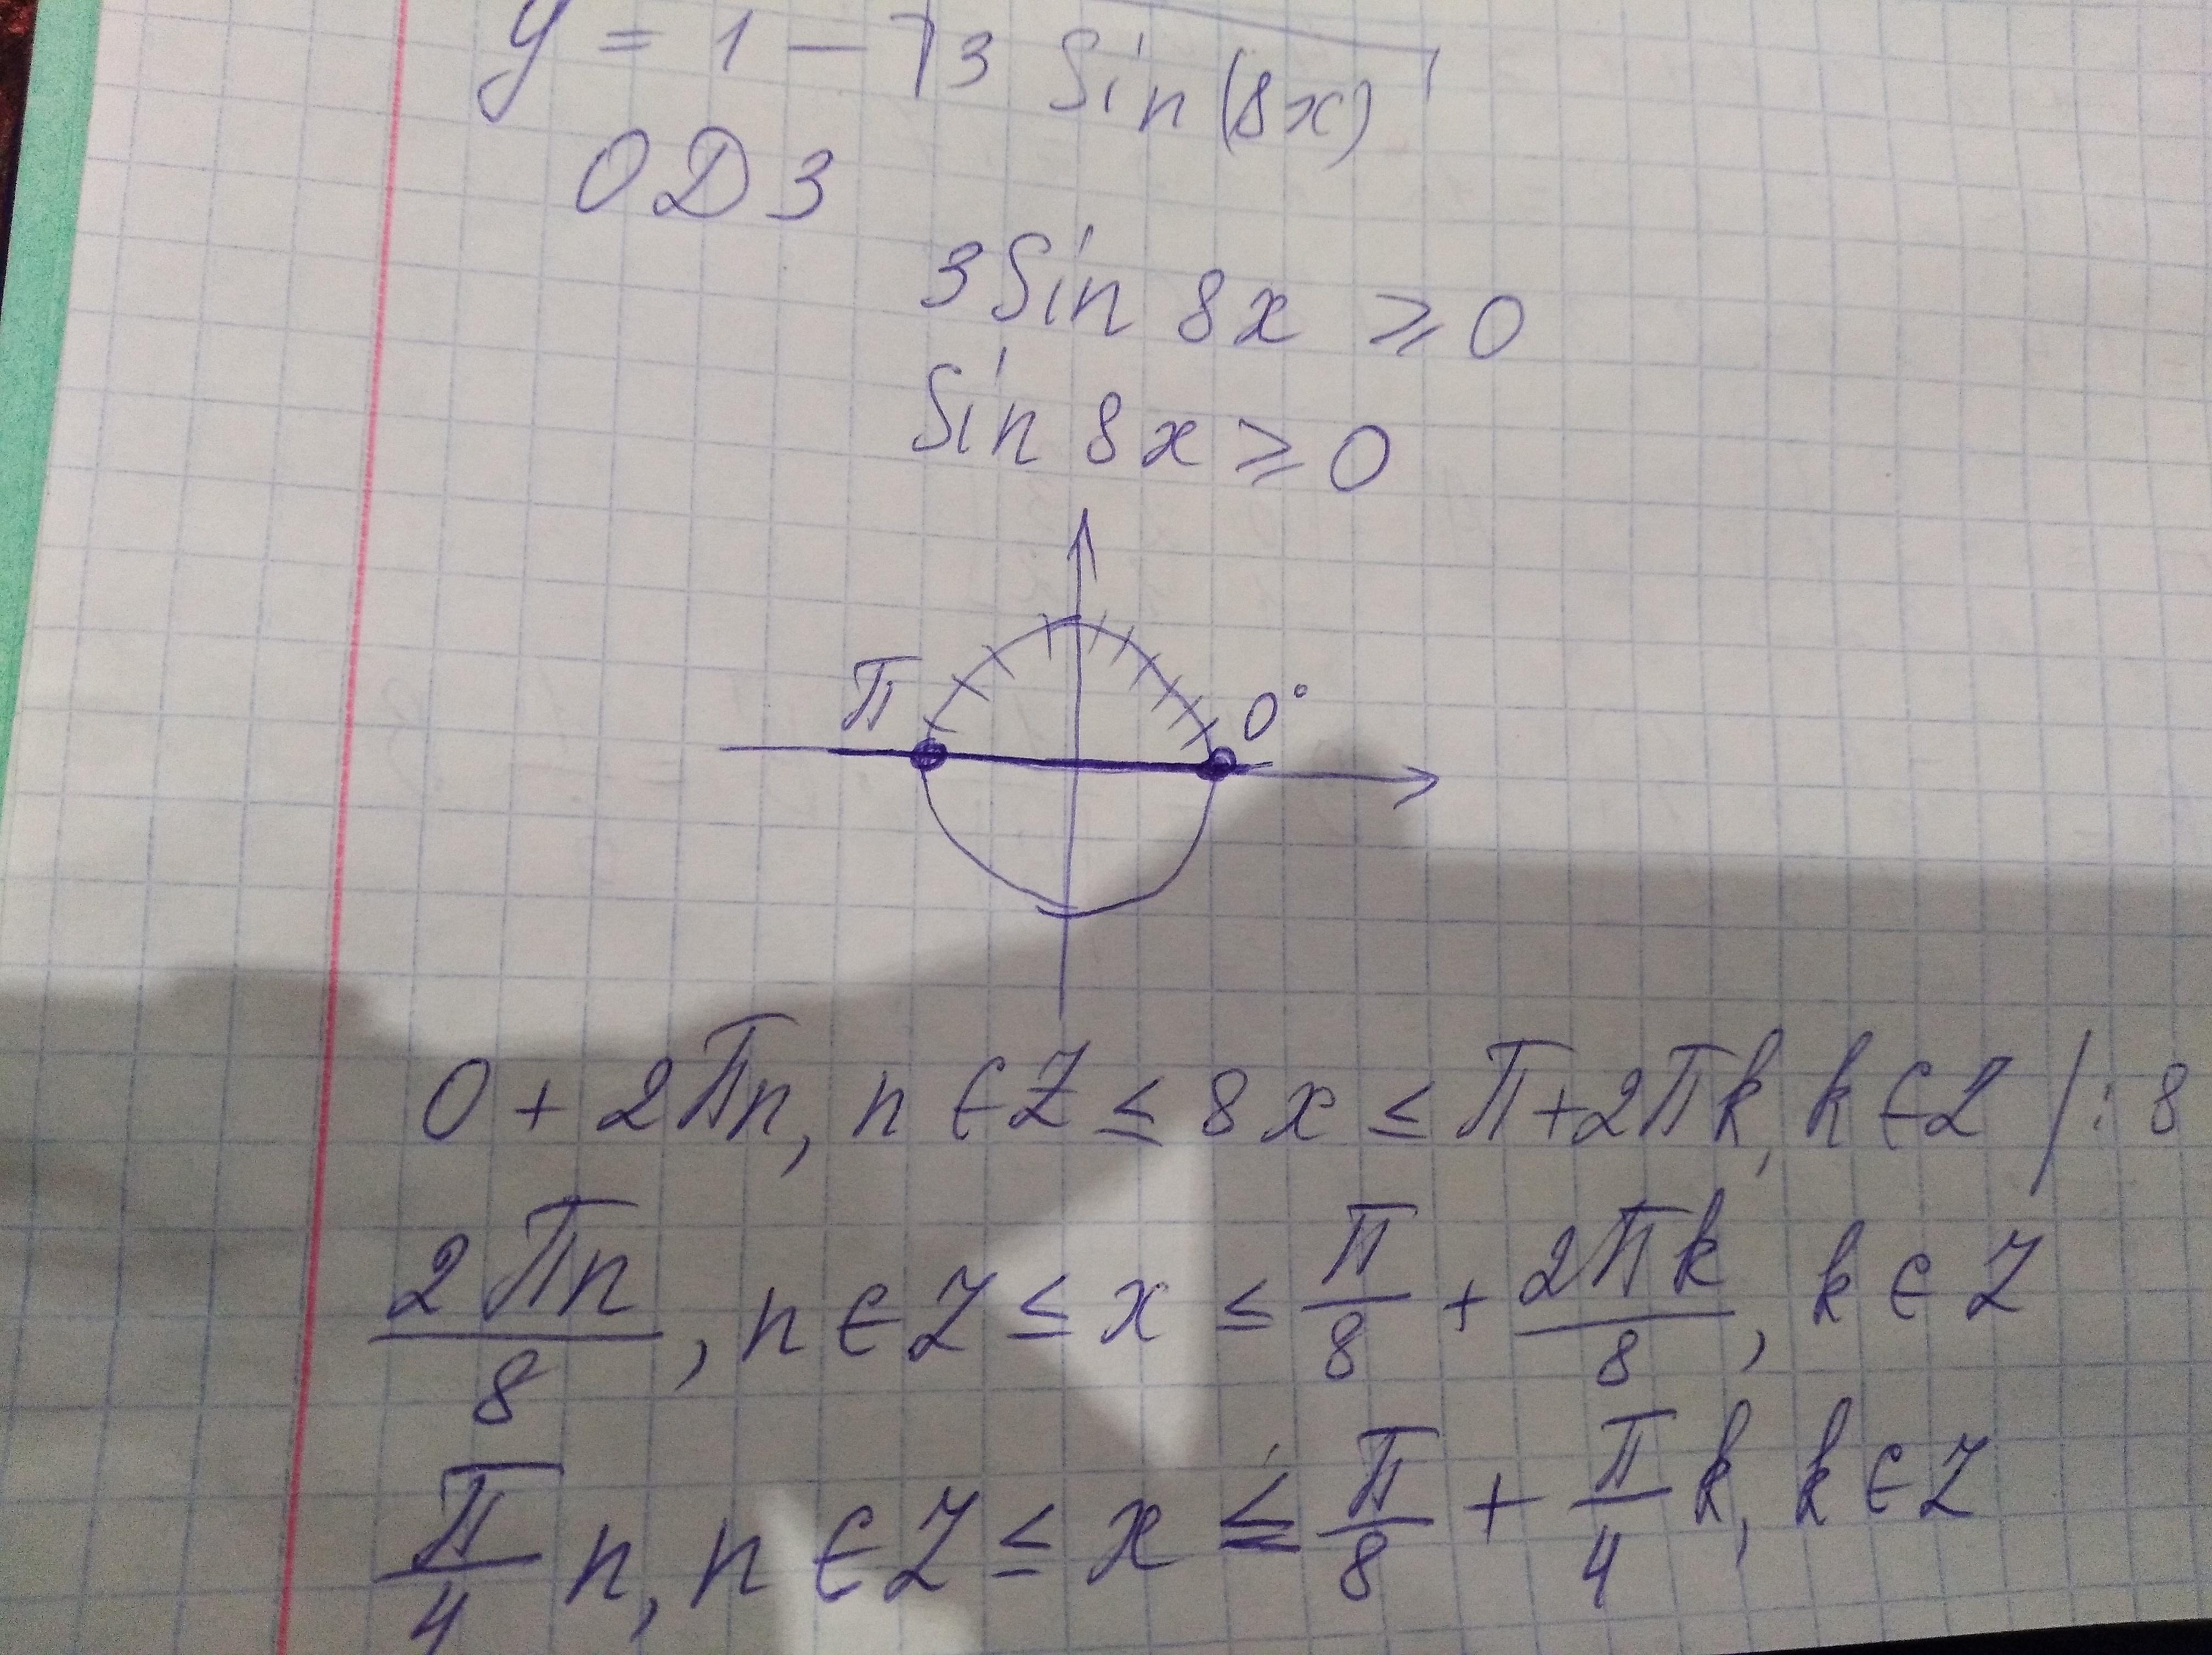 y = 1 − √3 Sin(8x)
ОДЗ
3Sin 8x ⩾ 0
Sin 8x ⩾ 0
π 0°
0 + 2πn, n ∈ Z ≤ 8x ≤ π + 2πk, k ∈ Z / : 8
2πn/8, n ∈ Z ≤ x ≤ π/8 + 2πk/8, k ∈ Z
π/4 n, n ∈ Z ≤ x ≤ π/8 + π/4 k, k ∈ Z